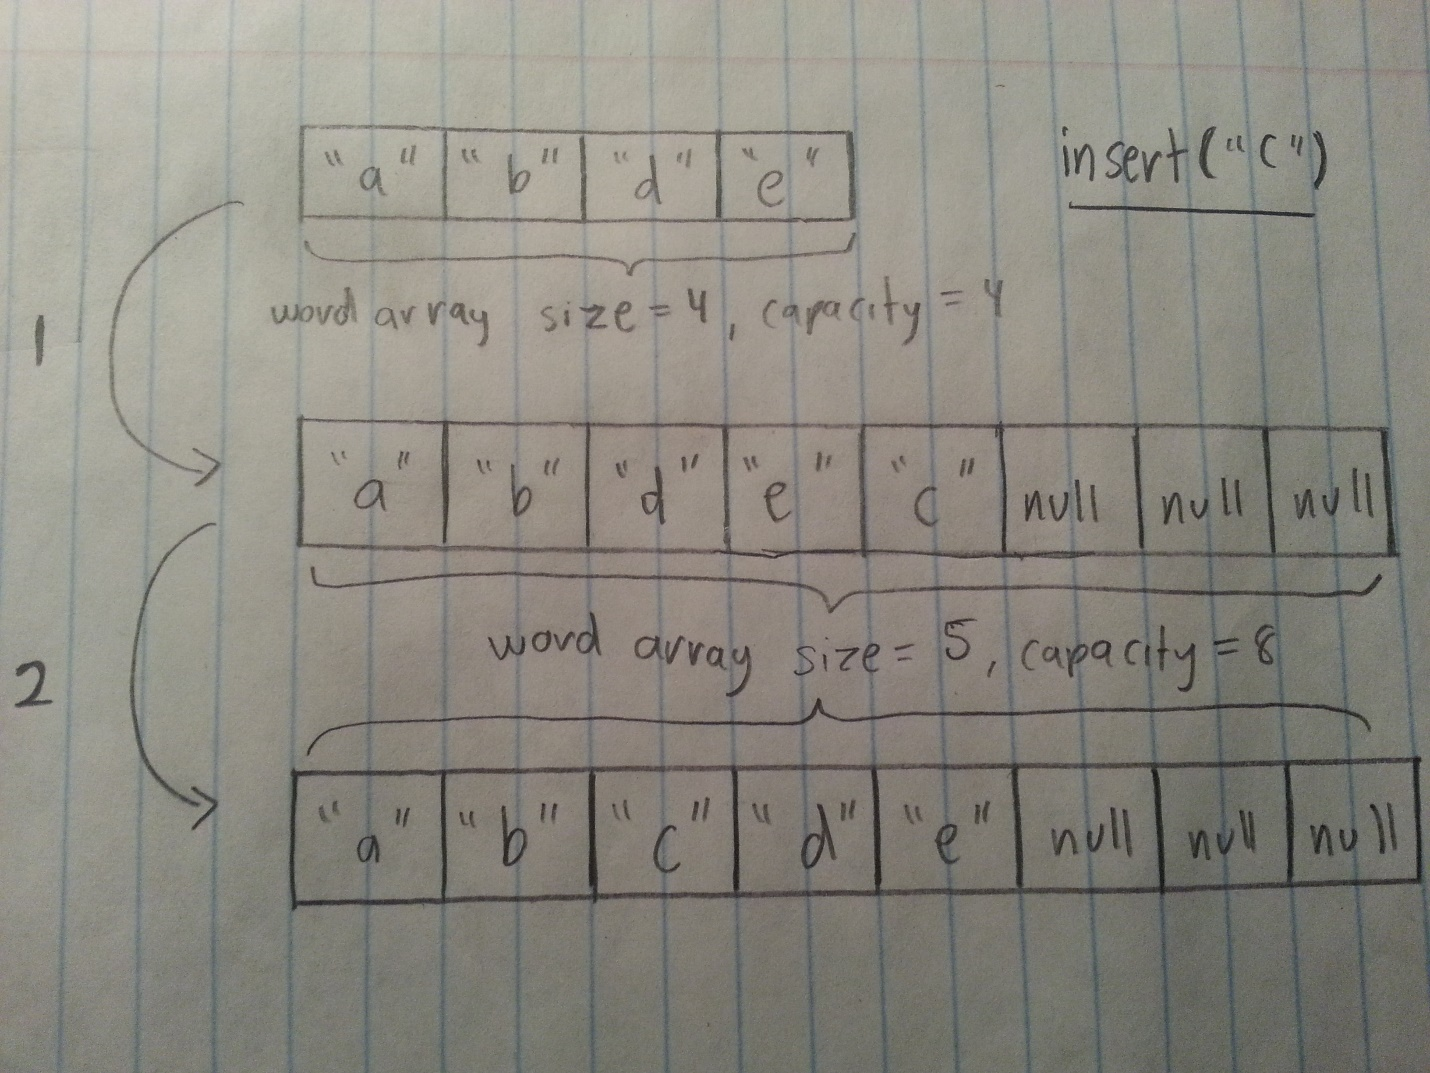 "a" "b" "d" "e"
insert("c")
word array size=4, capacity=4
1
"a" "b" "d" "e" "c" null null null
word array size=5, capacity=8
2
"a" "b" "c" "d" "e" null null null